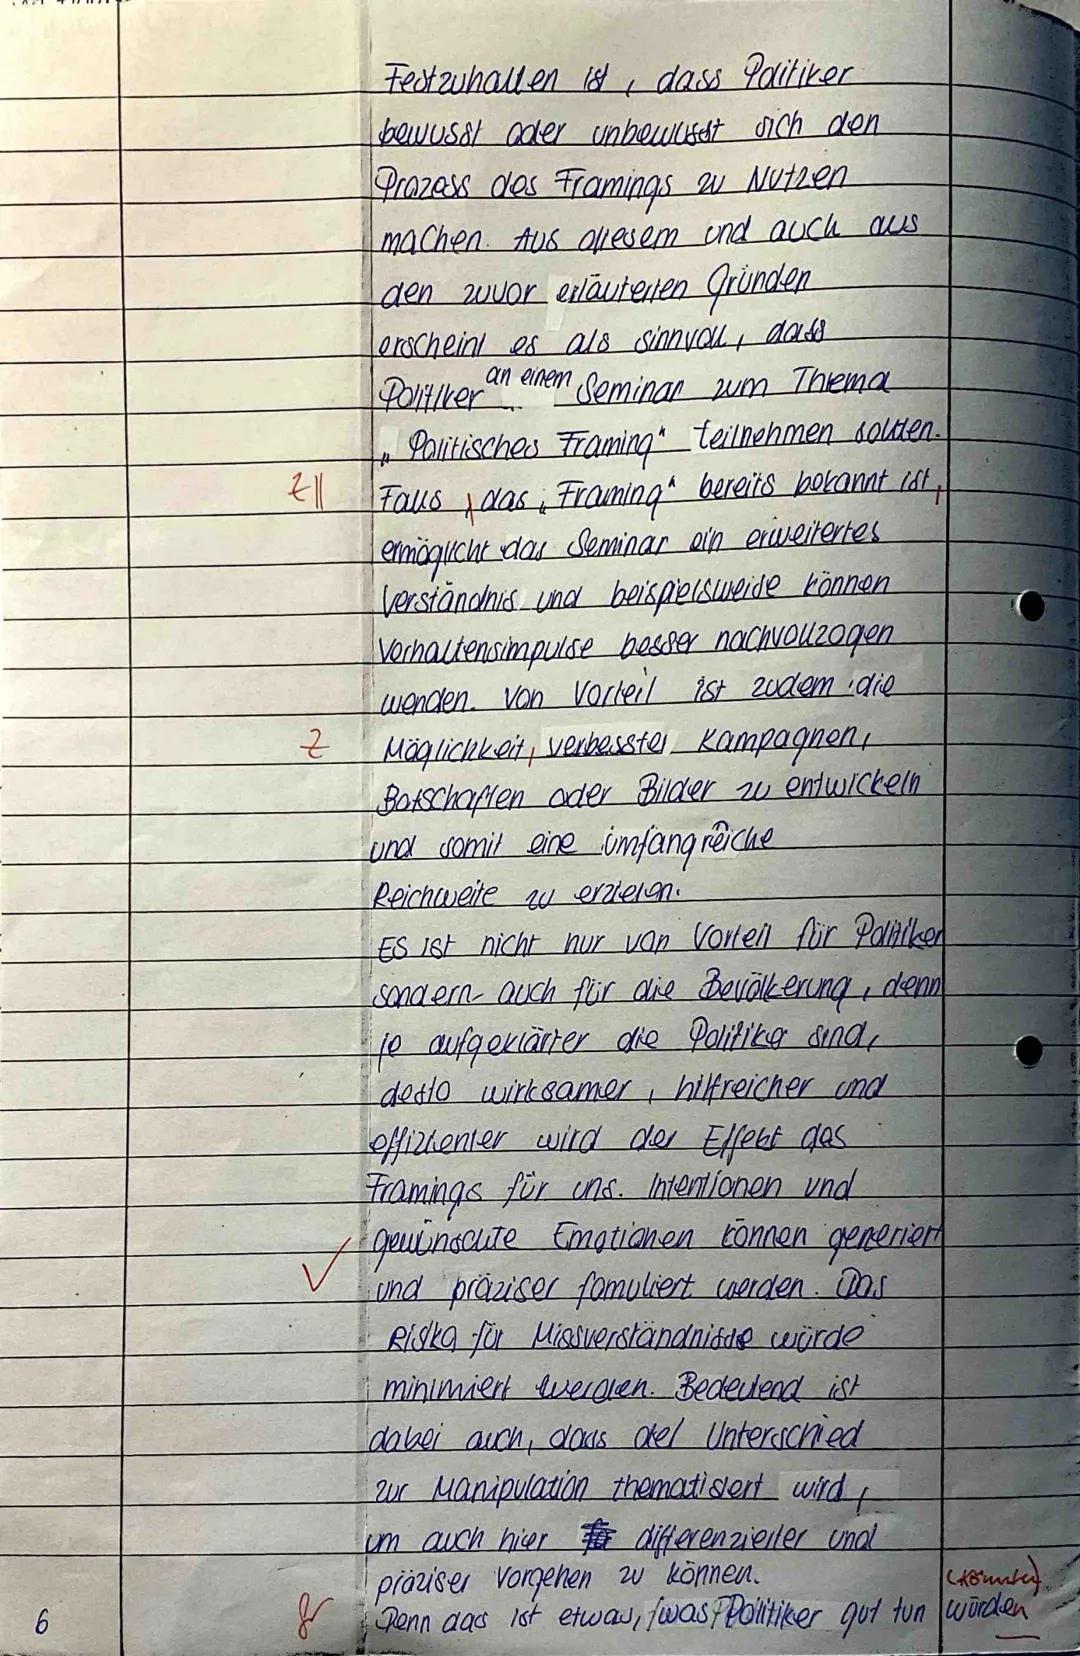 Festzuhalten ist, dass Politiker
bewusst oder unbewusst sich den
Prozess des Framings zu Nutzen
machen. Aus diesem und auch aus
den zuvor erläuterten Gründen
erscheint es als sinnvoll, dass
Politiker an einem Seminar zum Thema
„Politisches Framing“ teilnehmen sollten.
Z|| Falls, das „Framing“ bereits bekannt ist,
ermöglicht das Seminar ein erweitertes
Verständnis und beispielsweise können
Verhaltensimpulse besser nachvollzogen
werden. Von Vorteil ist zudem die
Z Möglichkeit, verbesster Kampagnen,
Botschaften oder Bilder zu entwickeln
und somit eine umfangreiche
Reichweite zu erzielen.
Es ist nicht nur von Vorteil für Politiker
sondern auch für die Bevölkerung, denn
je aufgeklärter die Politiker sind,
desto wirksamer, hilfreicher und
effizienter wird der Effekt des
Framings für uns. Intentionen und
gewünschte Emotionen können generiert
✓ und präziser fomuliert werden. Das
Risiko für Missverständnisse würde
minimiert werden. Bedeutend ist
dabei auch, dass der Unterschied
zur Manipulation thematisiert wird,
um auch hier differenzierter und
präziser Vorgehen zu können. (könnte)
6 gr Denn das ist etwas, was Politiker gut tun würden